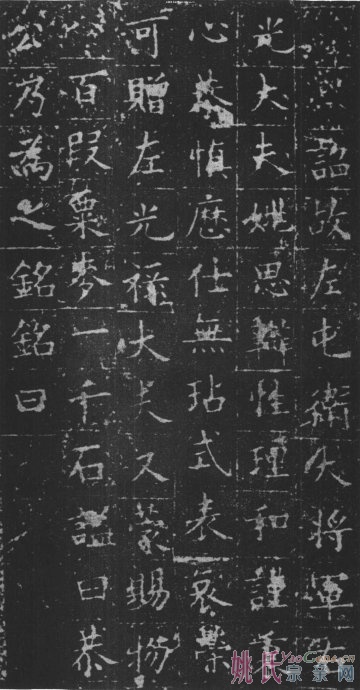 詔故左屯衛大將軍
光大夫姚思辯性理和謹
心恭慎歷仕無玷式表哀榮
可贈左光祿大夫又蒙賜物
百段粟麥一千石諡曰恭
公乃為之銘銘曰
姚氏宗亲网